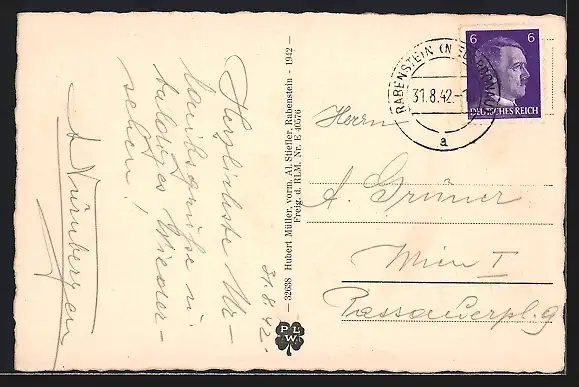 Herzlichste Ur-
laubsgrüße u.
baldiges Wieder-
sehen!
A. Nürnberger
31.8.42.
— 32638 Hubert Müller, vorm. Al. Stiefler, Rabenstein - 1942 —
Freig. d. RLM. Nr. E 40576
PLW
RABENSTEIN (N
31.8.42.-1
a
6 6
DEUTSCHES REICH
Herrn
A. Grüner
Wien I
Passauerpl. 9